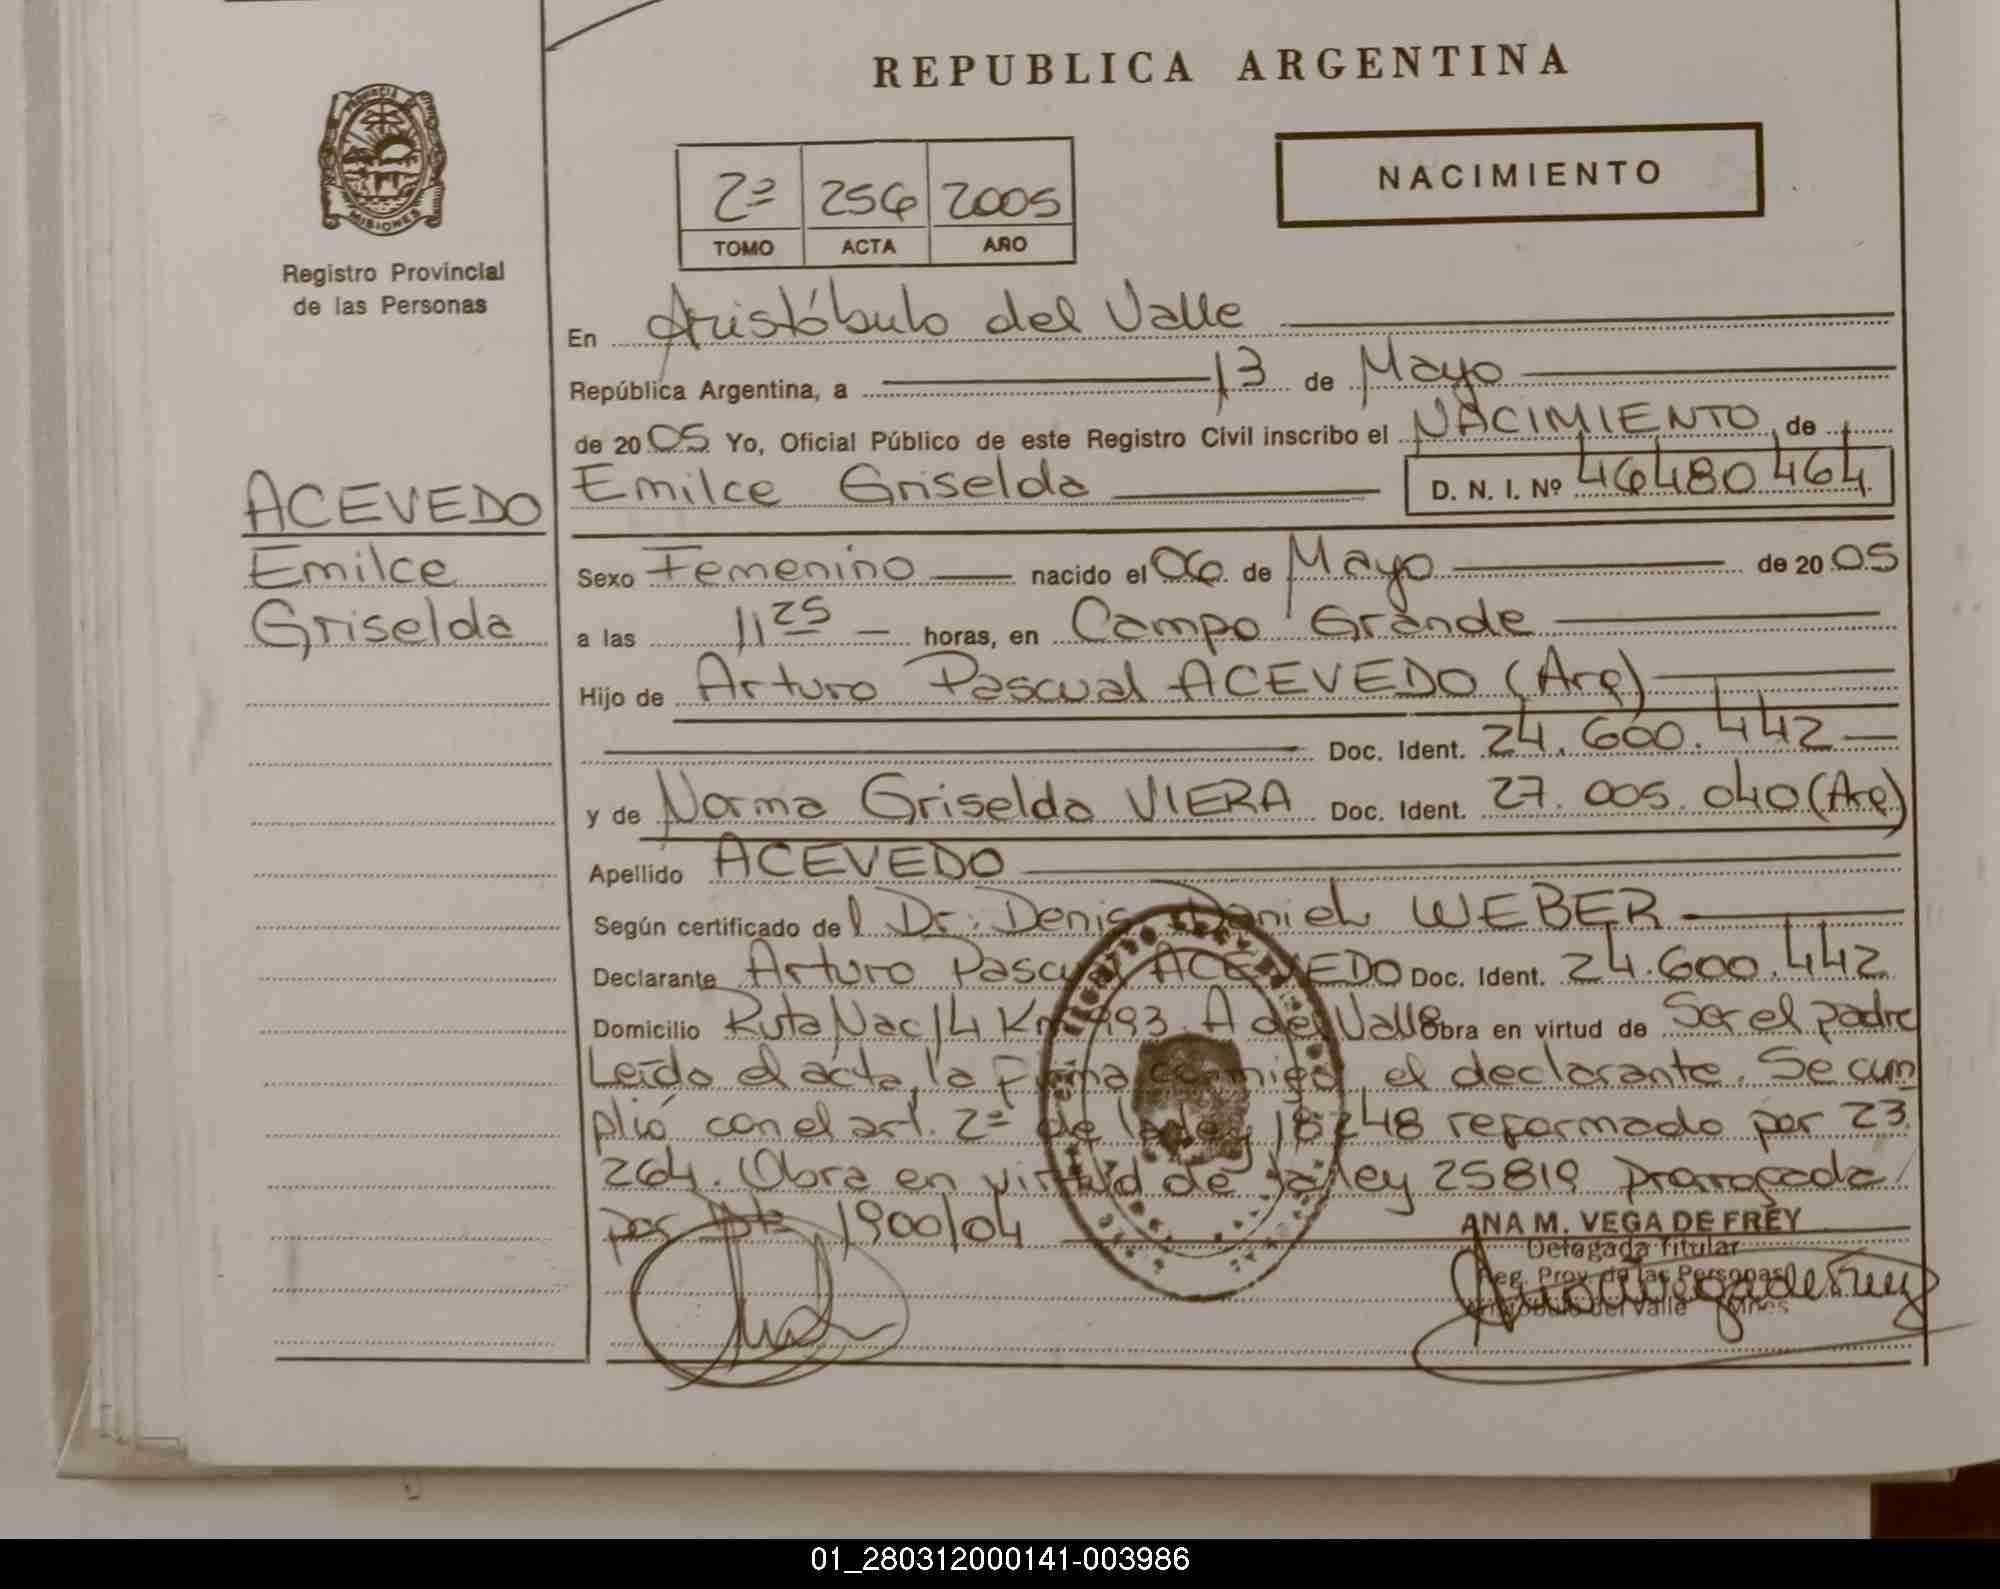 REPUBLICA ARGENTINA
PROVINCIA DE
MISIONES
Registro Provincial
de las Personas
2º 256 2005
TOMO ACTA AÑO
NACIMIENTO
En Aristóbulo del Valle
República Argentina, a 13 de Mayo
de 2005 Yo, Oficial Público de este Registro Civil inscribo el NACIMIENTO, de
ACEVEDO
Emilce
Griselda
Emilce Griselda D. N. I. Nº 46480464
Sexo Femenino nacido el 06 de Mayo de 2005
a las 11 25 horas, en Campo Grande
Hijo de Arturo Pascual ACEVEDO (Arg)
Doc. Ident. 24.600.442
y de Norma Griselda VIERA Doc. Ident. 27.005.040 (Arg)
Apellido ACEVEDO
Según certificado del Dr. Denis Daniel WEBER
Declarante Arturo Pascual ACEVEDO Doc. Ident. 24.600.442
Domicilio Ruta Nac 14 Km 993. A del Valle Obra en virtud de Ser el padre
Leído el acta, la firma conmigo, el declarante. Se cum
plió con el art. 2º de la ley 18248 reformado por 23.
264. Obra en virtud de la ley 25819 prorrogada
por 1900/04
ANA M. VEGA DE FREY
Delegada Titular
Reg. Prov. de las Personas
Aristóbulo del Valle Mnes
01_280312000141-003986